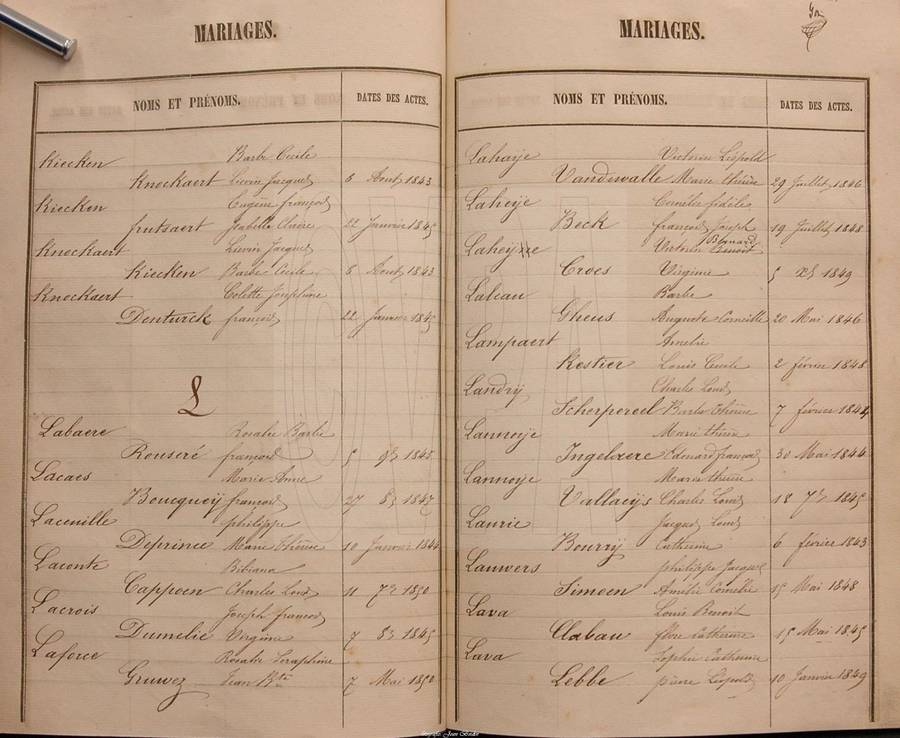 MARIAGES.
NOMS ET PRÉNOMS. DATES DES ACTES.
Kiecken Barbe Cecile
Knockaert Livin Jacques 8 Août 1843
Kiecken Eugène françois
frutsaert Isabelle Claire 22 Janvier 1845
Knockaert Livin Jacques
Kiecken Barbe Cecile 8 Août 1843
Knockaert Colette Joséphine
Denturck françois 22 Janvier 1845
L
Labaere Rosalie Barbe
Rouseré françois 5 9bre 1845
Lacaes Marie Anne
Boucquey françois 27 8bre 1847
Lacenille philippe
Deprince Marie Thérèse 10 Janvier 1844
Laconte Bibiana
Cappoen Charles Louis 11 7bre 1850
Lacrois Joseph françois
Dumelie Virginie 7 8bre 1845
Laforce Rosalie Seraphine
Gruwez Jean Bte 7 Mai 1850
MARIAGES.
NOMS ET PRÉNOMS. DATES DES ACTES.
Lahaije Victorin Léopold
Vandewalle Marie thérèse 29 Juillet 1846
Laheije Cornélie fidèle
Beck françois Joseph 19 Juillet 1848
Laheyne Victorin Bernard Benoit
Croes Virginie 5 xbre 1849
Laleau Barbe
Gheus Auguste Corneille 20 Mai 1846
Lampaert Amelie
Kestier Louis Cecile 2 février 1848
Landrij Charles Louis
Scherpereel Barbe Thérèse 7 février 1844
Lannoije Marie thérèse
Ingelaere Edouard françois 30 Mai 1844
Lannoye Marie thérèse
Vallaeijs Charles Louis 18 7bre 1845
Laurie Jacques Louis
Bourrij Catherine 6 février 1843
Lauwers philippe Jacques
Simoen Amélie Cornélie 15 Mai 1848
Lava Louis Benoit
Clabau flore Catherine 15 Mai 1845
Lava Sophie Catherine
Lebbe pierre Léopold 10 Janvier 1849